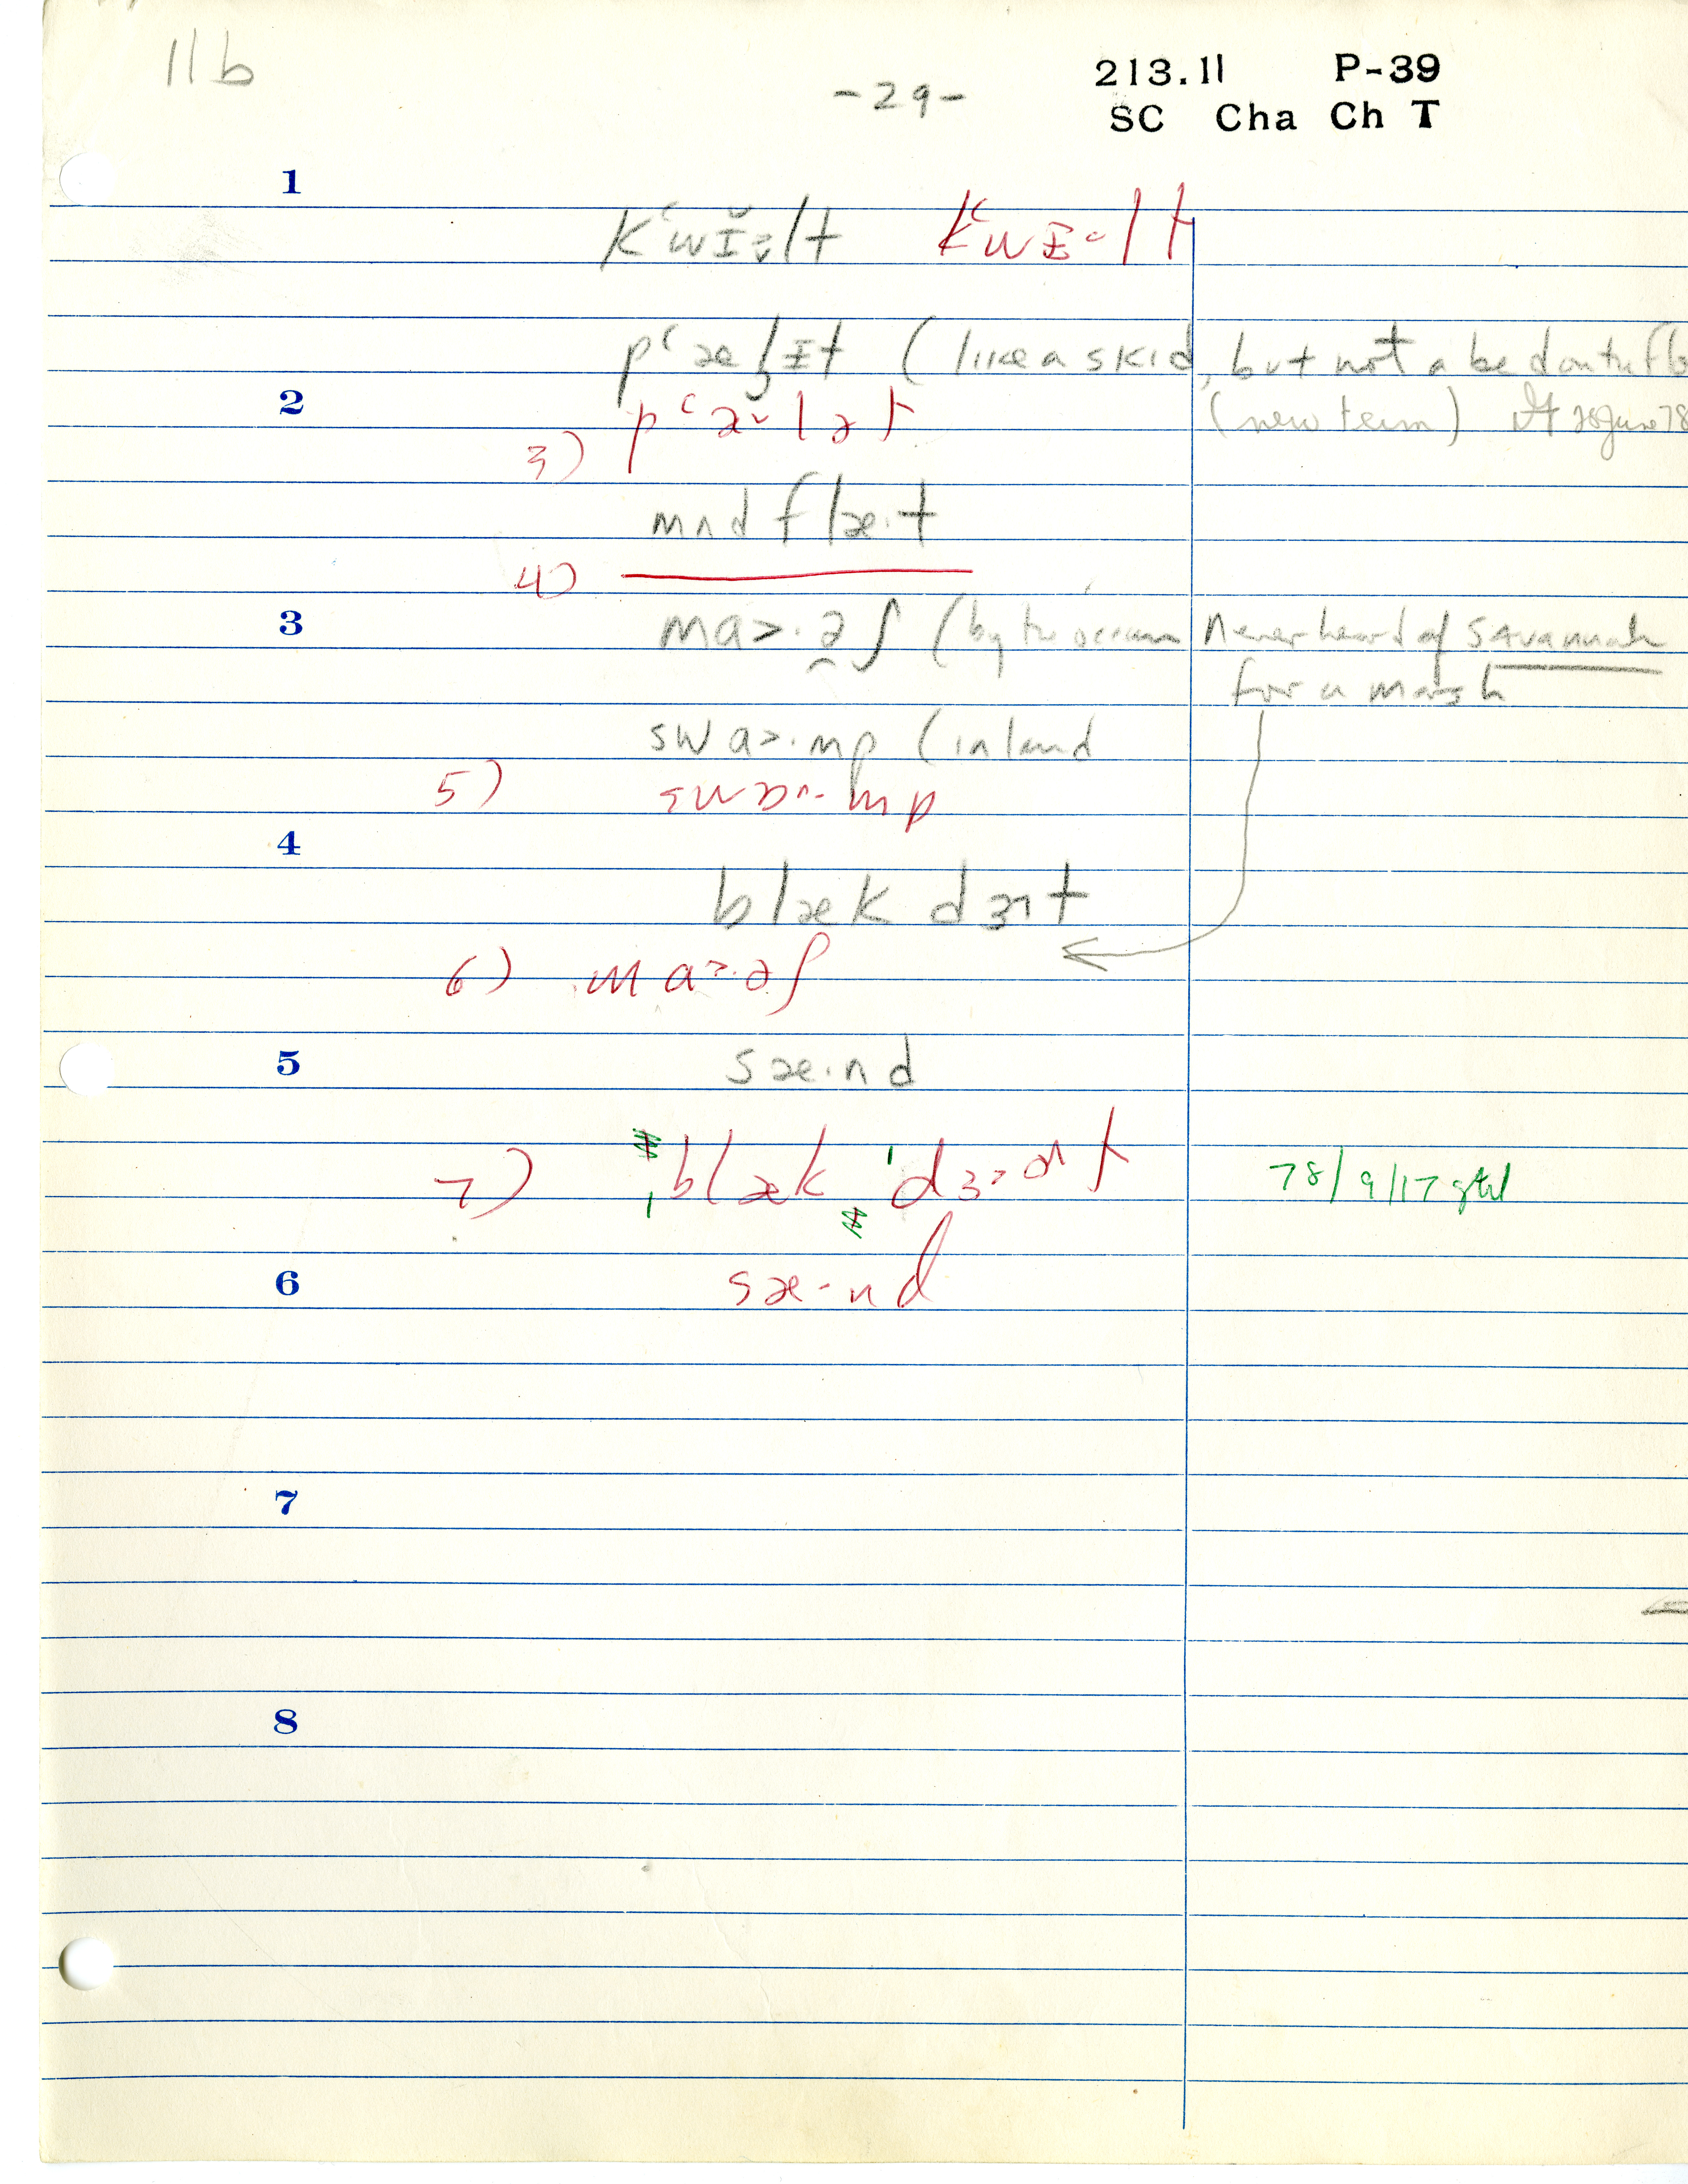 11b
-29-
213.11 P-39
SC Cha Ch T
1
kʻwɪ̆·lt kʻwɪ·lt
pʻælɪt (like a skid, but not a bed on the
2
(new term) 28 June 78
pʻæ˅lət
3)
mʌd flæ·t
4)
3
ma>·əʃ (by the ocean Never heard of Savannah
for a marsh
swa>·mp (inland
5)
swɒ^·mp
4
blæk dɜt
6) ma>·əʃ
5
sæ·nd
7) ˌblæk ˈdɜ>·t
78/9/17
6
sæ·nd
7
8